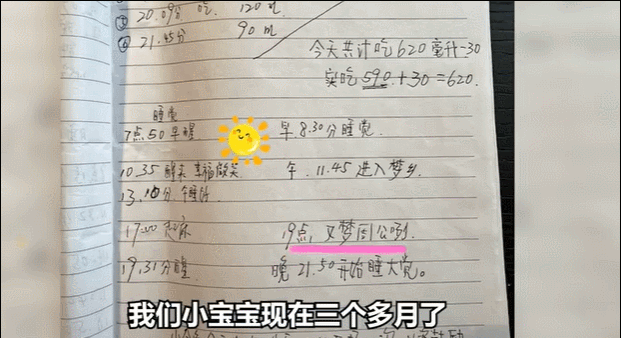 ③ 20.09分 吃 120 m
④ 21.45分 90 m
今天共计吃620毫升-30
实吃590+30=620.
睡觉
7点50早醒 早8.30分睡觉.
10.35醒来 幸福微笑 午.11.45进入梦乡.
13.10分.午睡好
17.00起床 19点,又梦周公咧.
19.31分醒. 晚21.50开始睡大觉。
我们小宝宝现在三个多月了